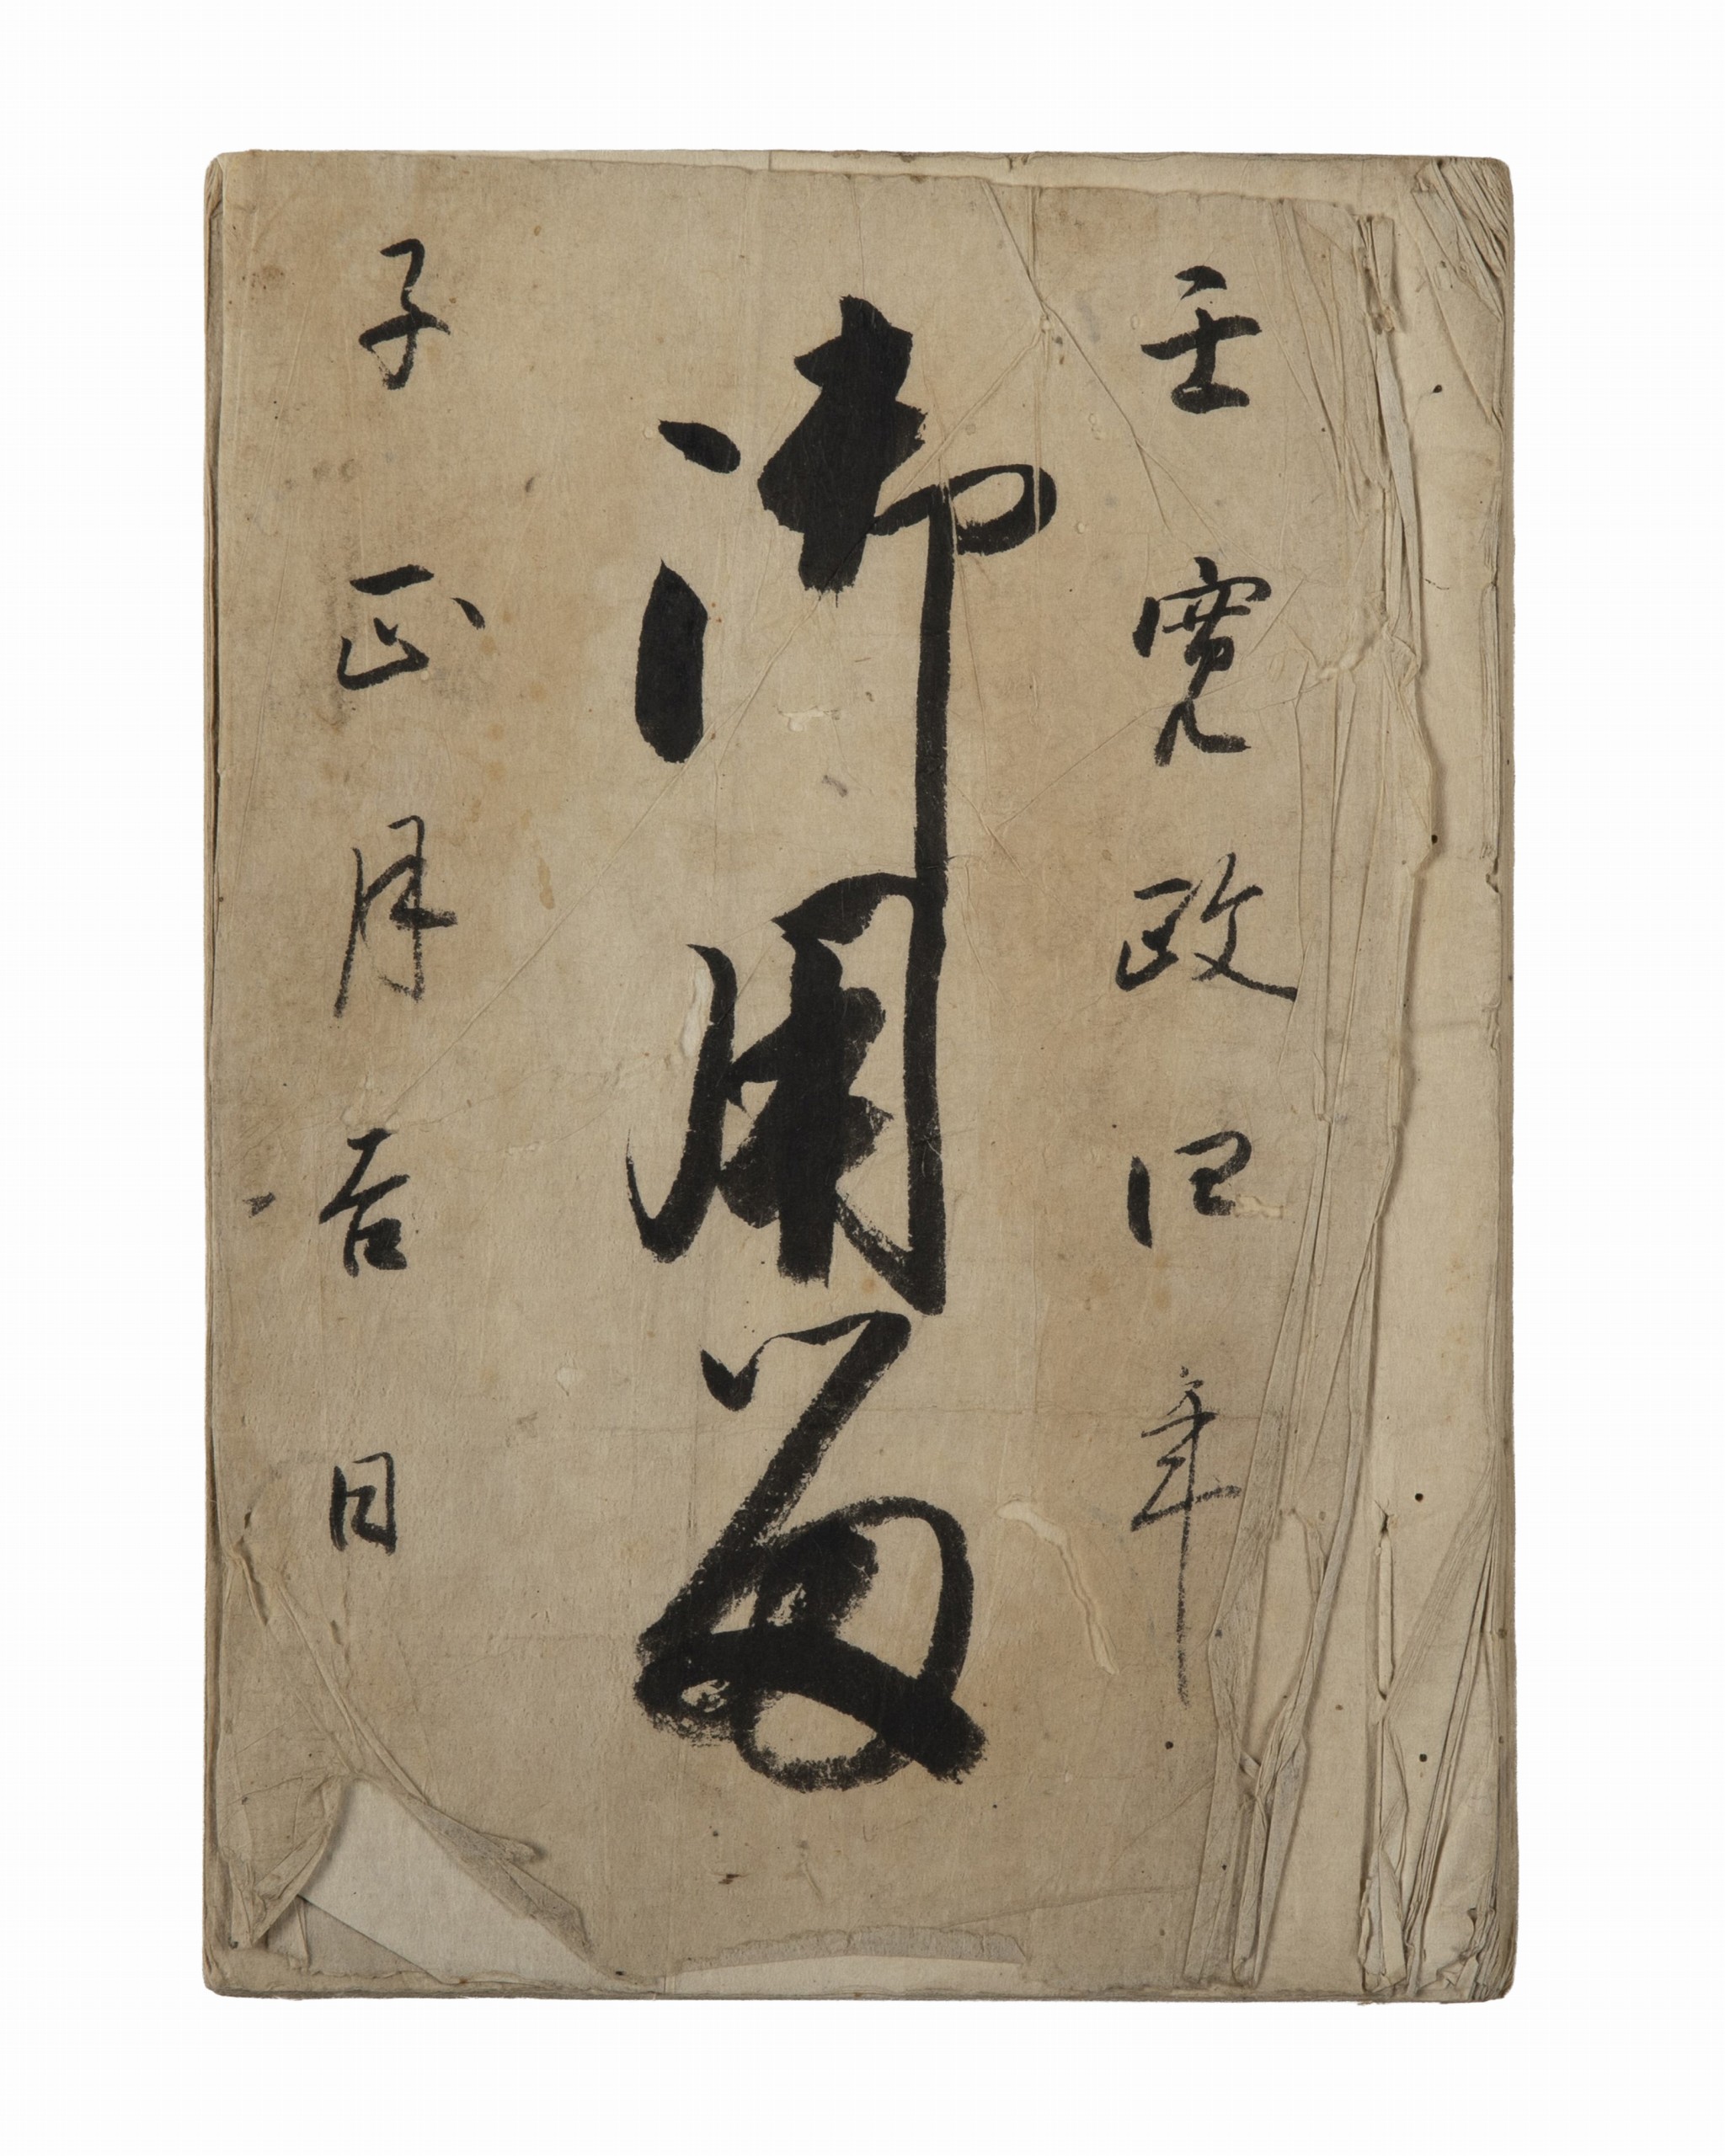 壬寛政四年
御用留
子正月吉日